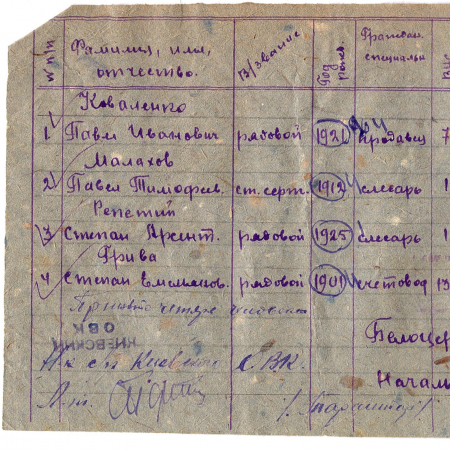 № п/п Фамилия, имя, отчество. В/звание Год рожд. Граждан. специальн
Коваленко
1 Павел Иванович рядовой 1921 продавец 7
Малахов
2 Павел Тимофев. ст. серж. 1912 слесарь 1
Репетий
3 Степан Арсент. рядовой 1925 слесарь 1
Грива
4 Степан Емельянов. рядовой 1901 счетовод 13
Принято четыре человека
КИЕВСКИЙ
ОВК
Белоцер
О.В.К.
Началь